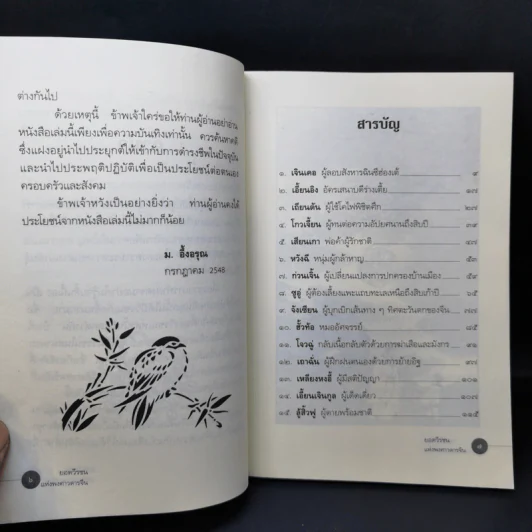 ต่างกันไป
ด้วยเหตุนี้ ข้าพเจ้าใคร่ขอให้ท่านผู้อ่านอย่าอ่าน
หนังสือเล่มนี้เพียงเพื่อความบันเทิงเท่านั้น ควรค้นหาคติ
ซึ่งแฝงอยู่นำไปประยุกต์ให้เข้ากับการดำรงชีพในปัจจุบัน
และนำไปประพฤติปฏิบัติเพื่อเป็นประโยชน์ต่อตนเอง
ครอบครัวและสังคม
ข้าพเจ้าหวังเป็นอย่างยิ่งว่า ท่านผู้อ่านคงได้
ประโยชน์จากหนังสือเล่มนี้ไม่มากก็น้อย
ม. อึ้งอรุณ
กรกฎาคม 2548
๖
ยอดวีรชน
แห่งพงศาวดารจีน
สารบัญ
๑. เจินเคอ ผู้ลอบสังหารฉินซีฮ่องเต้ ๙
๒. เอี้ยนอิง อัครเสนาบดีร่างเตี้ย ๑๗
๓. เถียนตัน ผู้ใช้โคไฟพิชิตศึก ๒๗
๔. โกวเจี้ยน ผู้ทนต่อความอัปยศนานถึงสิบปี ๓๕
๕. เสียนเกา พ่อค้าผู้รักชาติ ๔๗
๖. หวังฉี หนุ่มผู้กล้าหาญ ๕๓
๗. ก่วนเจิ้น ผู้เปลี่ยนแปลงการปกครองบ้านเมือง ๕๙
๘. ซูอู่ ผู้ต้องเลี้ยงแพะแถบทะเลเหนือถึงสิบเก้าปี ๖๕
๙. จังเซียน ผู้บุกเบิกเส้นทาง ๆ ทิศตะวันตกของจีน ๗๗
๑๐. ฮั้วท้อ หมออัศจรรย์ ๘๕
๑๑. โจวฉู่ กลับเนื้อกลับตัวด้วยการฆ่าเสือและมังกร ๙๑
๑๒. เถาฉั่น ผู้ฝึกฝนตนเองด้วยการย้ายอิฐ ๙๗
๑๓. เหลียงหงอี้ ผู้มีสติปัญญา ๑๐๑
๑๔. เลี้ยนเจินกูล ผู้เด็ดเดี่ยว ๑๐๗
๑๕. ลู้สิ้วฟู ผู้ตายพร้อมชาติ ๑๑๕
ยอดวีรชน
แห่งพงศาวดารจีน
๗